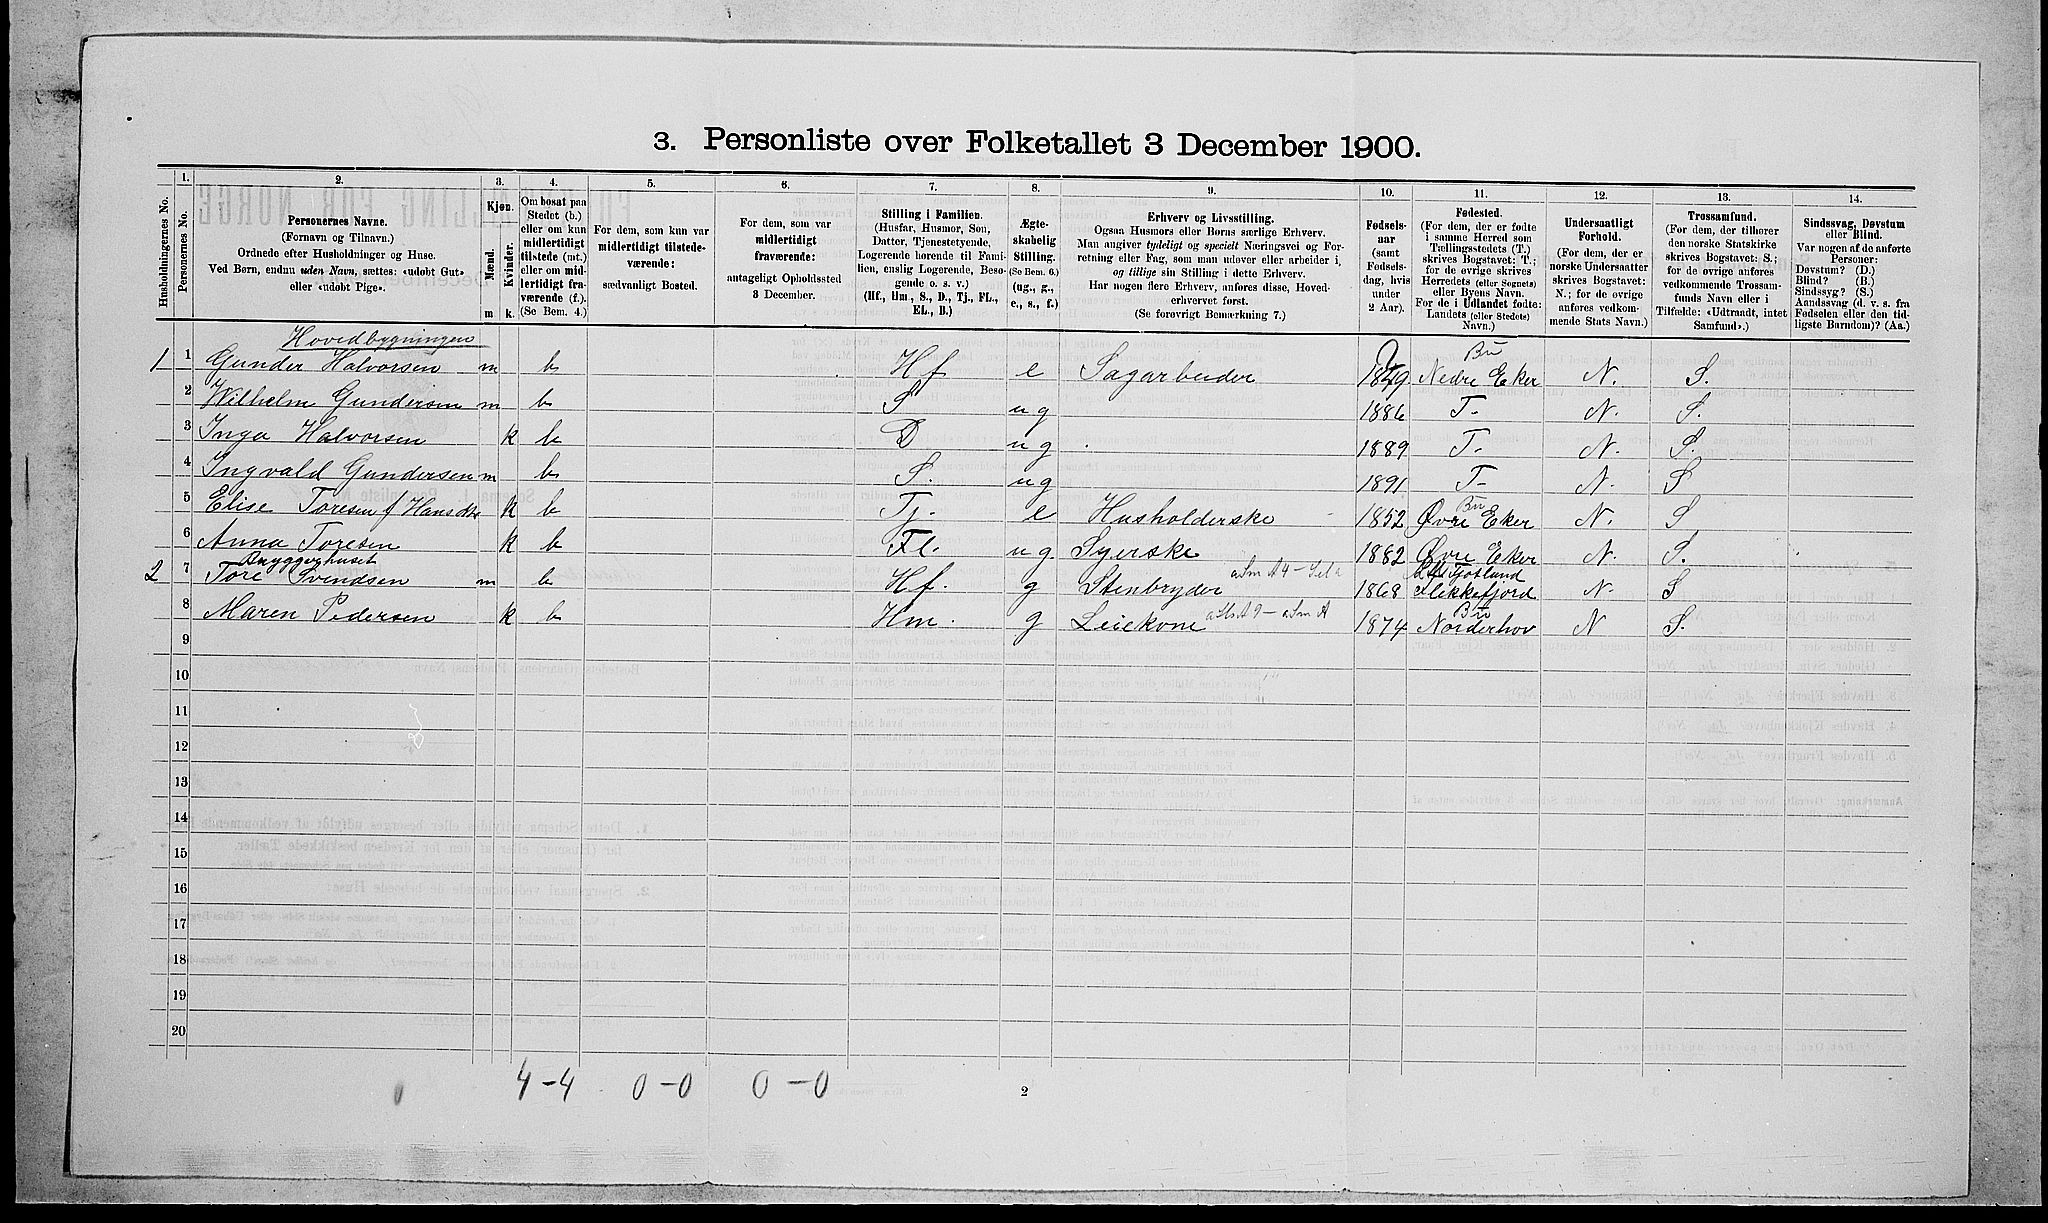 3. Personliste over Folketallet 3 December 1900.
Husholdningernes No.
1.
Personernes No.
2.
Personernes Navne.
(Fornavn og Tilnavn.)
Ordnede efter Husholdninger og Huse.
Ved Børn, endnu uden Navn, sættes: «udøbt Gut»
eller «udøbt Pige».
3.
Kjøn.
Mænd.
Kvinder.
m k.
4.
Om bosat paa
Stedet (b.)
eller om kun
midlertidigt
tilstede (mt.)
eller om mid-
lertidigt fra-
værende (f.).
(Se Bem. 4.)
5.
For dem, som kun var
midlertidigt tilstede-
værende:
sædvanligt Bosted.
6.
For dem, som var
midlertidigt
fraværende:
antageligt Opholdssted
3 December.
7.
Stilling i Familien.
(Husfar, Husmor, Søn,
Datter, Tjenestetyende,
Logerende hørende til Fami-
lien, enslig Logerende, Besø-
gende o. s. v.)
(Hf., Hm., S., D., Tj., FL.,
EL., B.)
8.
Ægte-
skabelig
Stilling.
(Se Bem. 6.)
(ug., g.,
e., s., f.)
9.
Erhverv og Livsstilling.
Ogsaa Husmors eller Børns særlige Erhverv.
Man angiver tydeligt og specielt Næringsvei og For-
retning eller Fag, som man udøver eller arbeider i,
og tillige sin Stilling i dette Erhverv.
Har nogen flere Erhverv, anføres disse, Hoved-
erhvervet først.
(Se forøvrigt Bemærkning 7.)
10.
Fødsels-
aar
(samt
Fødsels-
dag, hvis
under
2 Aar).
11.
Fødested.
(For dem, der er fødte
i samme Herred som
Tællingsstedets (T.)
skrives Bogstavet: T.;
for de øvrige skrives
Herredets (eller Sognets)
eller Byens Navn.
For de i Udlandet fødte:
Landets (eller Stedets)
Navn.)
12.
Undersaatligt
Forhold.
(For dem, der er
norske Undersaatter
skrives Bogstavet:
N.; for de øvrige
anføres vedkom-
mende Stats Navn.)
13.
Trossamfund.
(For dem, der tilhører
den norske Statskirke
skrives Bogstavet: S.;
for de øvrige anføres
vedkommende Trossam-
funds Navn eller i
Tilfælde: «Udtraadt, intet
Samfund».)
14.
Sindssvag, Døvstum
eller Blind.
Var nogen af de anførte
Personer:
Døvstum? (D.)
Blind? (B.)
Sindssyg? (S.)
Aandssvag (d. v. s. fra
Fødselen eller den tid-
ligste Barndom)? (Aa.)
Hovedbygningen
1 1 Gunder Halvorsen m b Hf e Sagarbeider 1849 Nedre Eker Bu N. S.
2 Wilhelm Gundersen m b S ug 1886 T- N. S.
3 Inga Halvorsen k b D ug 1889 T- N. S.
4 Ingvald Gundersen m b S. ug 1891 T- N. S
5 Elise Toresen k b Tj. e Husholderske 1852 Øvre Eker Bu N. S
6 Anna Toresen k b Fl. ug Syerske 1882 Øvre Eker N. S.
Bryggerhuset
2 7 Tore Svendsen m b Hf. g Stenbryder 1868 Flekkefjord N. S
8 Maren Pedersen k b Hm. g Leiekone 1874 Norderhov Bu N S.
9
10
11
12
13
14
15
16
17
18
19
20
4-4 0-0 0-0
2